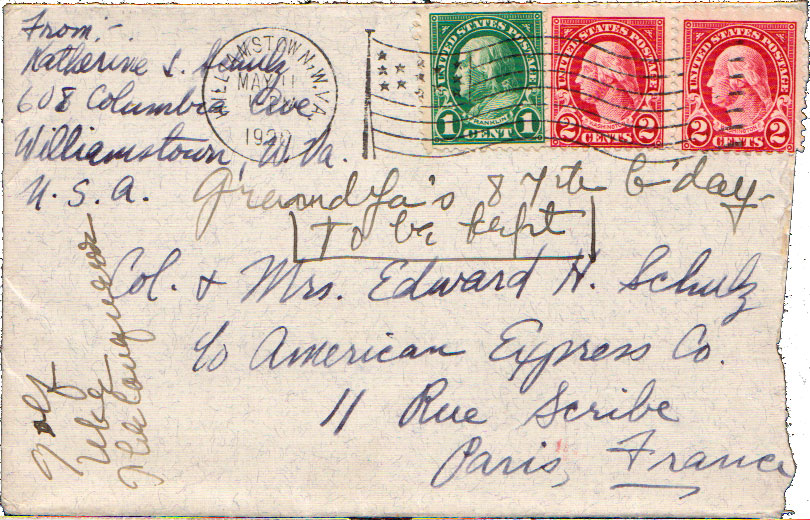 From:-
Katherine S. Schulz
608 Columbia Ave
Williamstown, W. Va.
U. S. A.
WILLIAMSTOWN, W. VA.
MAY 11
UNITED STATES POSTAGE
FRANKLIN
1 CENT 1
UNITED STATES POSTAGE
WASHINGTON
2 CENTS 2
UNITED STATES POSTAGE
2 CENTS 2
Grandpa's 87th b'day-
To be kept
Col. & Mrs. Edward H. Schulz
c/o American Express Co.
11 Rue Scribe
Paris, France
like
The